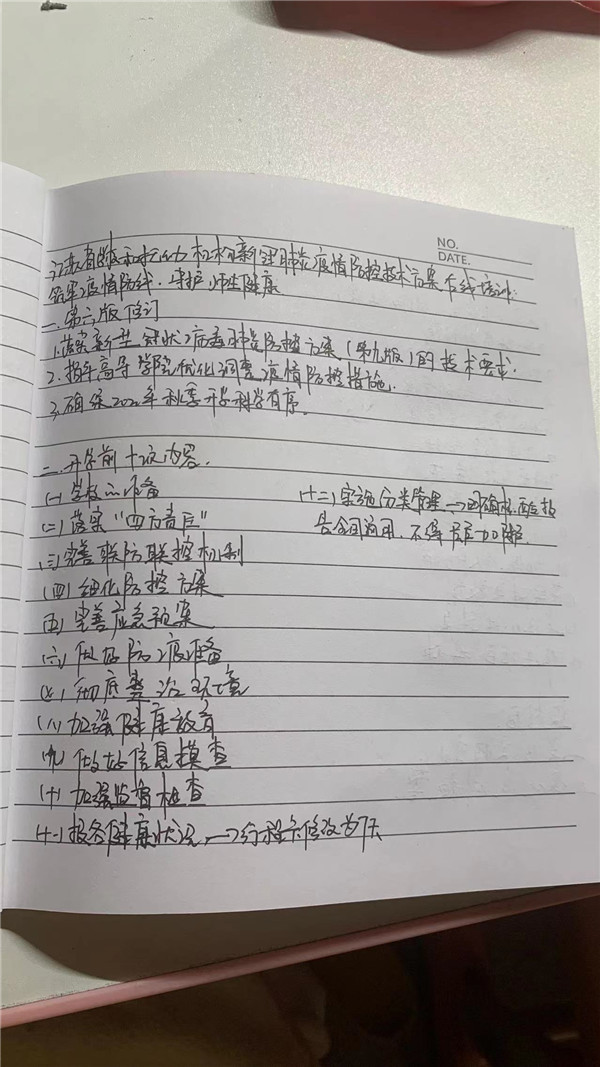 NO.
DATE.
托幼机构新冠肺炎疫情防控技术方案在线培训:
筑牢疫情防线,守护师生健康
一.第六版修订
1.落实新型冠状病毒肺炎防控方案(第九版)的技术要求.
2.指导高等学院优化调整疫情防控措施.
3.确保2022年秋季开学科学有序.
二.开学前十二项内容.
(一)学校准备
(二)落实"四方责任"
(三)完善联防联控机制
(四)细化防控方案
(五)完善应急预案
(六)做好防疫准备
(七)彻底整治环境
(八)加强健康教育
(九)做好信息摸查
(十)加强监督检查
(十一)报备健康状况 → 行程卡修改为7天
(十二)实施分类管理 →
不得层层加码